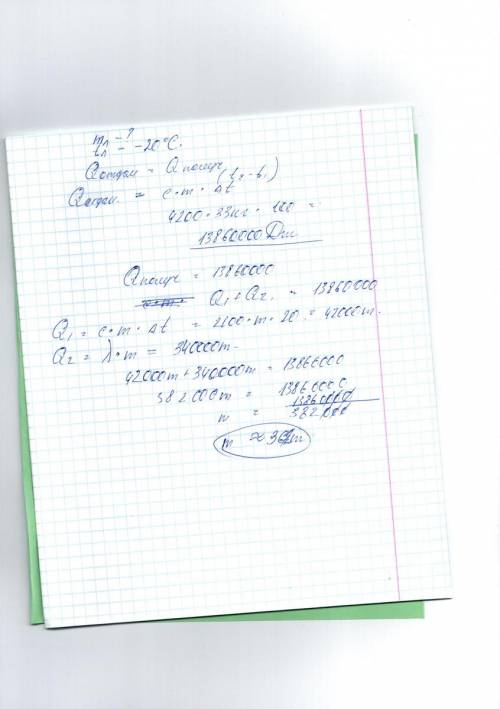 m л - ?
t л = -20°C.
Q отдан = Q получ
Q отдан. = c·m·Δt (t₂-t₁)
4200·33кг·100 =
13860000 Дж
Q получ = 13860000
Q₁+Q₂ = 13860000
Q₁ = c·m·Δt = 2100·m·20 = 42000m.
Q₂ = λ·m = 340000m
42000m+340000m = 13860000
382000m = 13860000
m = 13860000/382000
m ≈